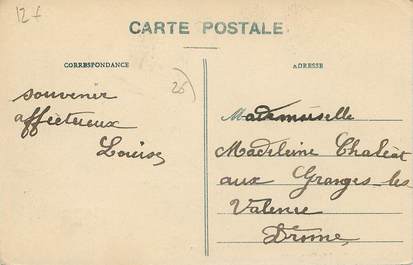 12f
CARTE POSTALE
CORRESPONDANCE
ADRESSE
souvenir
affectueux
Louise
Mademoiselle
Madeleine
aux Granges-les
Valence
Drôme